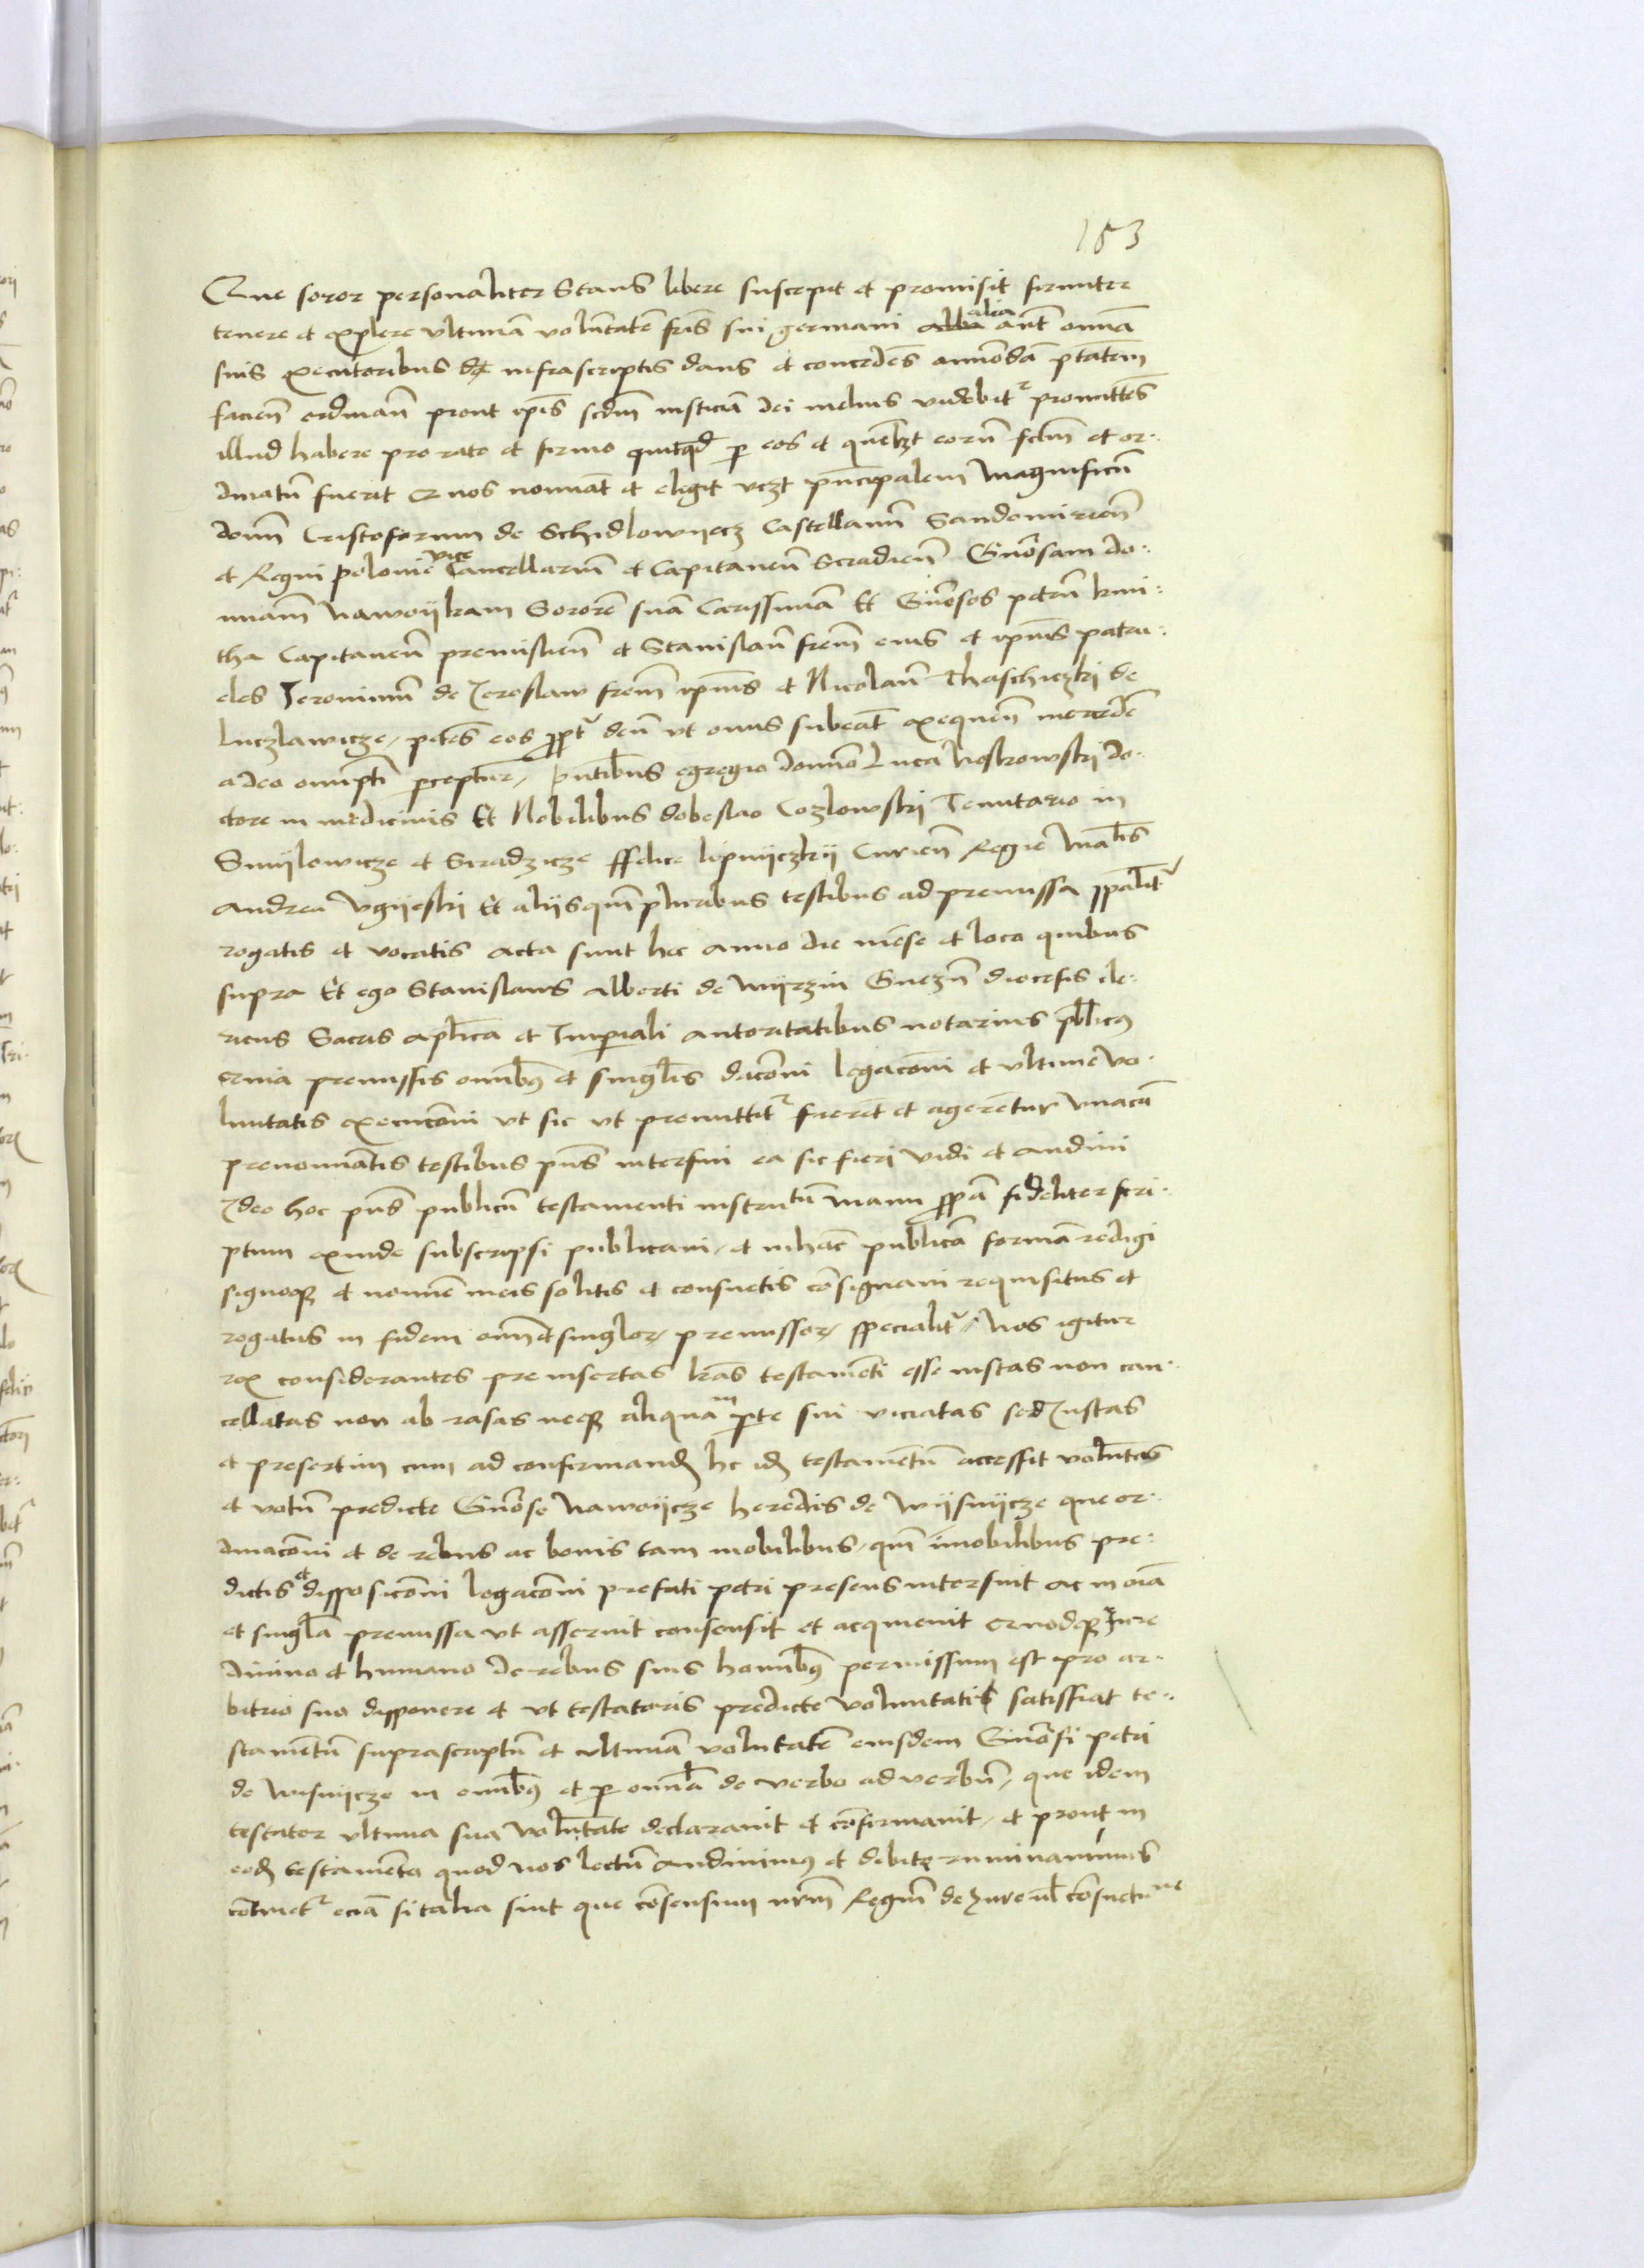 183
Que soror personaliter Stans libere suscepit et promisit firmiter
tenere et explere ultimā volūtatē frīs sui germani alia aūt omīa
suis executoribus infrascriptis dans et concedēs omīodā ptātem
faciendī ordinandī prout ipīs scdm iusticiā dei melius videbitr promittēs
illud habere pro rato et firmo quitqd p eos et quēlzt eorū fctm et or-
dinatū fuerit Et nos nominat et elegit vczt principalem Magnificū
domī Cristoforum de Schidlowyecz Castellanū Sandomirienī
et Regni polonie vice Cancellariū et Capitaneū Siradienī Gnōsam do-
minam Nawoykam Sororē suā Carissimā Et Gnōsos petrū kmi-
tha Capitaneū premislienī et Stanislaū frem eius et ipius patru-
eles Jeronimū de Jeroslaw frem ipius et Nicolaū Thaschiczki de
Luczlawicze, petēs eos propt deū ut onus subeāt exequenī mercedē
a deo omīpti pceptur, pntibus egregio domīo Luca Noskowski do-
ctore in medicinis Et Nobilibus dobeslao Cozlowski Tenutario in
Smylowicze et Siradzicze ffelice lipnyczky Curienī Regie Matis
Andrea Vgyeski Et alijs quī pluribus testibus ad premissa spalitr
rogatis et vocatis Acta sunt hec Anno die mēse et loco quibus
supra Et ego Stanislaus Alberti de Wyrzin Gneznī diocesis cle-
ricus Sacris aplica et Imperiali autoritatibus notarius pblicus
Quia premissis omibus et singlis dacōni legacōni et ultime vo-
luntatis execucōni ut sic ut premittitr fierēt et agerentur vnacū
prenomīatis testibus pns interfui ea sic fieri vidi et audiui
Ideo hoc pns publicū testamenti instrutū manu ppā fideliter scri-
ptum exinde subscripsi publicaui, et in hāc publicā formā redigi
signoqz et nomīe meis solitis et consuetis cōsignaui requisitus et
rogatus in fidem omī et singlorz premissorz specialitr, Nos igitur
rex considerantes preinsertas lrās testamēti esse iustas non can-
cellatas non ab rasas neqz aliqua in pte sui viciatas sed Justas
et presertim cum ad confirmandz hc idz testamētū accessit volūtas
et votū predicte Gnōse Nawoycze heredis de Wysnycze que or-
dinacōni et de rebus ac bonis tam mobilibus, quī imobilibus pre-
dictis et disposicōni legacōni prefati petri presens interfuit ac in oīa
et singla premissa ut asseruit consensit et acquieuit Quodqz iure
diuino et humano de rebus suis homībus permissum est pro ar-
bitrio suo disponere et ut testatoris predicte voluntatis satisfiat te-
stamētū suprascriptū et ultimā volutatē eiusdem Gnōsi petri
de Wisnycze in omībus et p omīa de verbo ad verbū, que idem
testator ultima sua volūtate declarauit et cōfirmauit, et prout in
eodz testamēto quod nos lectū audiuimus et debite ruminauimus
cōtinetr eciā si talia sint que cōsensum nrm Regiū de Jure ul cōsuetudine